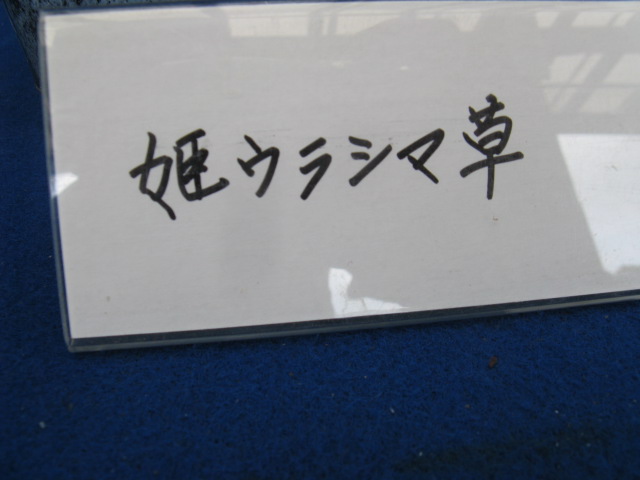 姫ウラシマ草